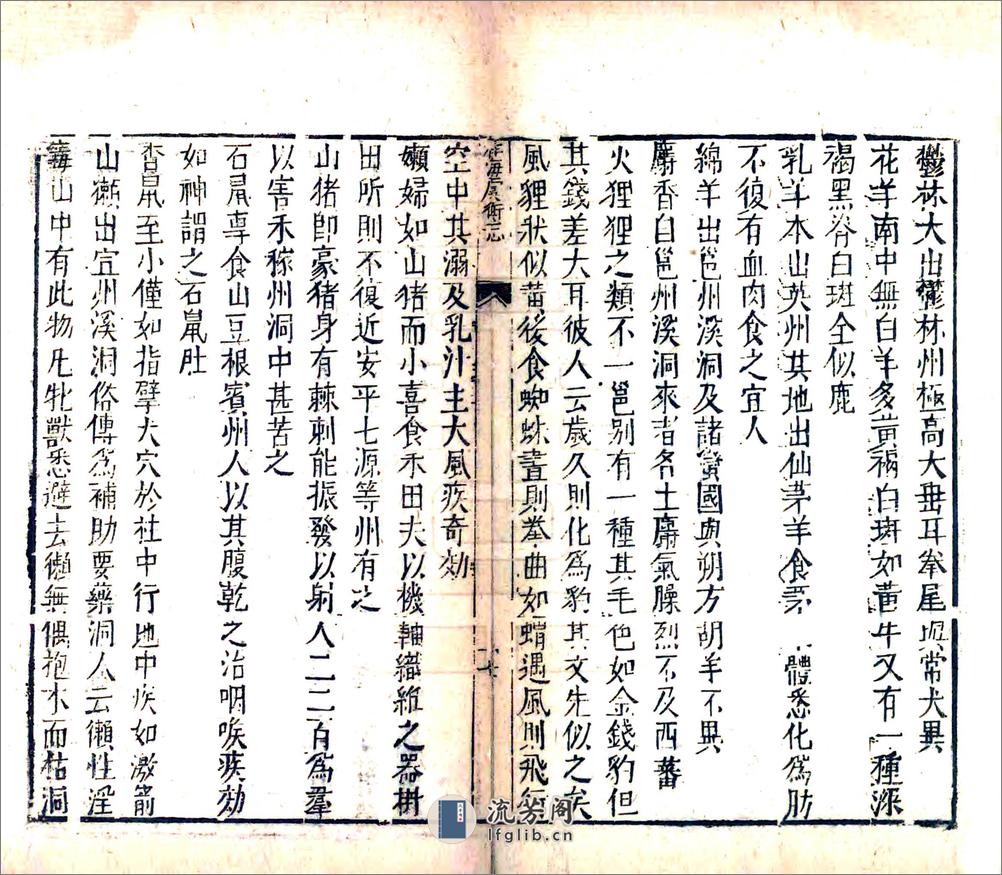 鬱林犬出鬱林州極高大垂耳拳尾與常犬異
花羊南中無白羊多黃褐白斑如黃牛又有一種深
褐黑脊白斑全似鹿
乳羊本出英州其地出仙茅羊食茅體悉化為肪
不復有血肉食之宜人
綿羊出邕州溪洞及諸蠻國與朔方胡羊不異
麝香自邕州溪洞來者名土麝氣臊烈不及西蕃
火狸狸之類不一邕别有一種其毛色如金錢豹但
其錢差大耳彼人云歲久則化為豹其文先似之矣
風狸狀似黃猨食蜘蛛晝則拳曲如蝟遇風則飛行
空中其溺及乳汁主大風疾奇効
嬾婦如山猪而小喜食禾田夫以機軸織維之器掛
田所則不復近安平七源等州有之
山猪即豪猪身有棘刺能振發以射人二三百為羣
以害禾稼州洞中甚苦之
石鼠專食山豆根賓州人以其腹乾之治咽喉疾効
如神謂之石鼠肚
香鼠至小僅如指擘大穴於柱中行地中疾如激箭
山獺出宜州溪洞俗傳為補助要藥洞人云獺性淫
毒山中有此物凡牝獸悉避去獺無偶抱木而枯洞
流芳阁
lfglib.cn